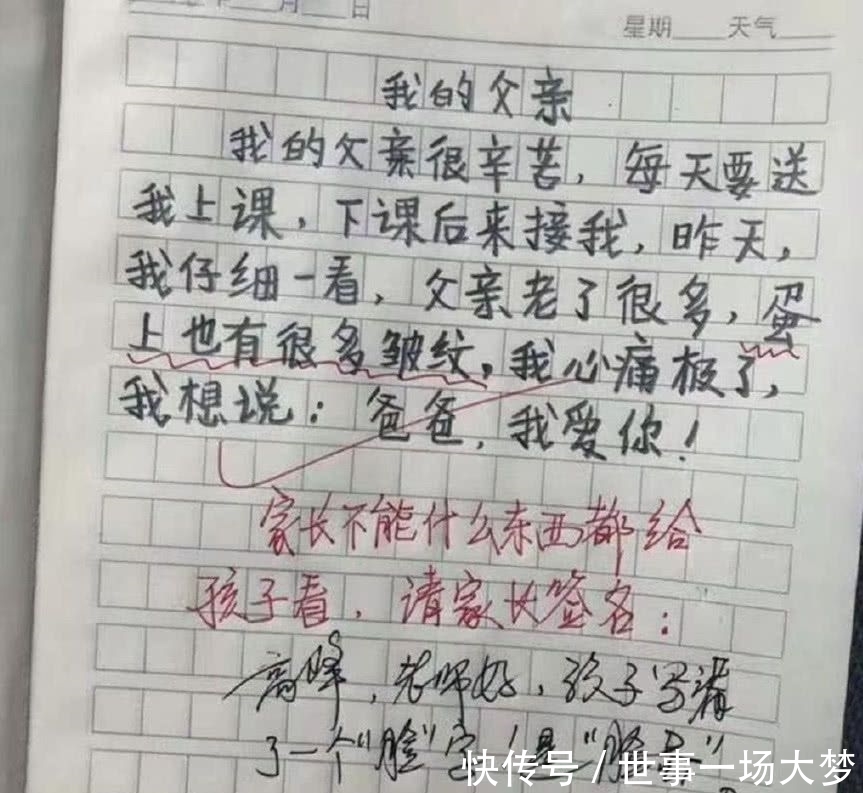 月 日
星期 天气
我的父亲
我的父亲很辛苦，每天要送
我上课，下课后来接我，昨天，
我仔细一看，父亲老了很多，蛋
上也有很多皱纹，我心痛极了，
我想说：爸爸，我爱你！
家长不能什么东西都给
孩子看，请家长签名：
高峰，老师好，孩子写漏
了一个"脸"字！是"脸蛋"
快传号/世事一场大梦